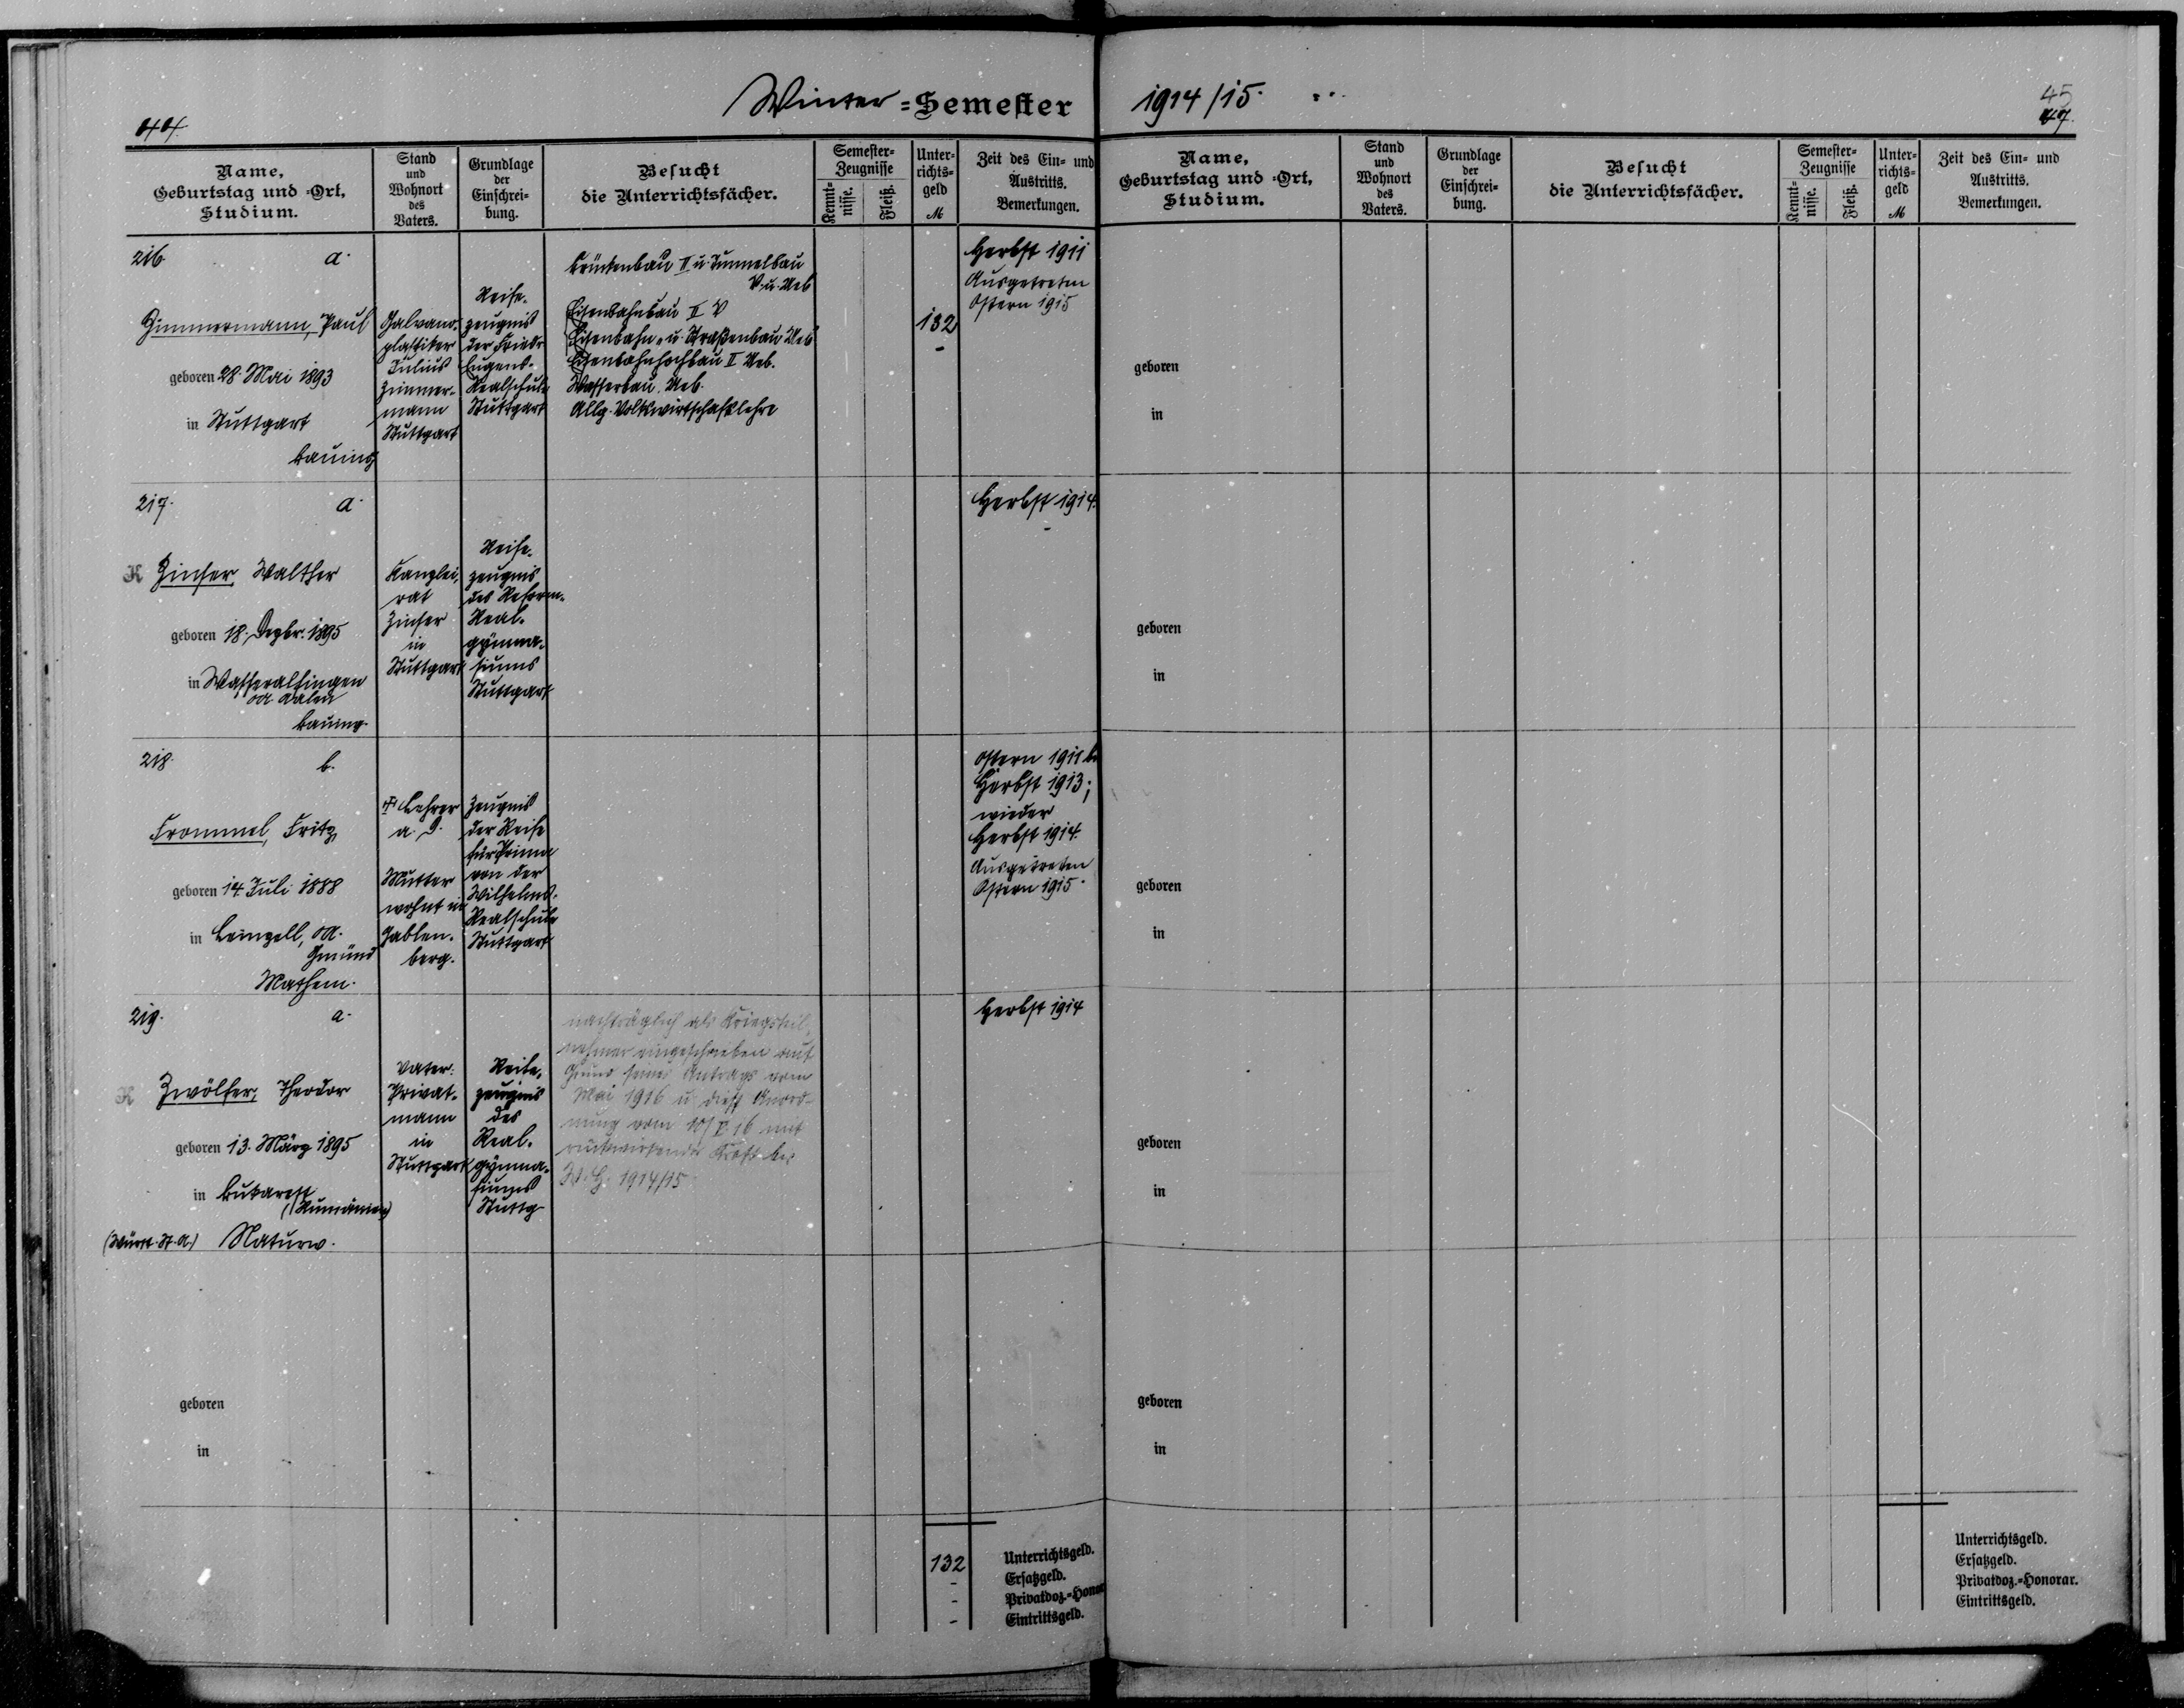 Winter=Semester
1914/15.
44.
45
47.
Name,
Geburtstag und =Ort,
Studium.
Stand
und
Wohnort
des
Vaters.
Grundlage
der
Einschrei=
bung.
Besucht
die Unterrichtsfächer.
Semester=
Zeugnisse
Kennt=
nisse.
Fleiß.
Unter=
richts=
geld
M
Zeit des Ein= und
Austritts.
Bemerkungen.
216. a.
Zimmermann, Paul
geboren 28. Mai 1893
in Stuttgart
Bauing
Galvano-
plastiker
Julius
Zimmer-
mann
Stuttgart
Reife-
zeugnis
der Friedr
Eugens-
Realschule
Stuttgart
Brückenbau II u. Tunnelbau
V. u. Ueb
Eisenbahnbau II V
Eisenbahn- u. Straßenbau Ueb
Eisenbahnhochbau II Ueb.
Wasserbau Ueb.
Allg. Volkswirtschaftslehre
132
-
Herbst 1911
Ausgetreten
Ostern 1915
217. a.
K Zinser, Walther
geboren 18. Dezbr. 1895
in Wasseralfingen
OA. Aalen
Bauing.
Kanzlei-
rat
Zinser
in
Stuttgart
Reife-
zeugnis
des Reform-
Real-
gymna-
siums
Stuttgart
Herbst 1914.
-
218. b.
Frommel, Fritz
geboren 14. Juli 1888
in Leinzell, OA.
Gmünd
Mathem.
Lehrer
a. D.
Mutter
wohnt in
Gablen-
berg.
Zeugnis
der Reife
für Prima
von der
Wilhelms-
Realschule
Stuttgart
Ostern 1911 bis
Herbst 1913;
wieder
Herbst 1914.
Ausgetreten
Ostern 1915.
219. a.
K Zwölfer, Theodor
geboren 13. März 1895
in Bukarest
(Rumänien)
(Württ. St. A.) Naturw.
Vater:
Privat-
mann
in
Stuttgart
Reife-
zeugnis
des
Real-
gymna-
siums
Stuttg
nachträglich als Kriegsteil-
nehmer eingeschrieben auf
Grund seines Antrags vom
Mai 1916 u. Anord-
nung vom 16 mit
rückwirkender Kraft
1914/15
Herbst 1914
geboren
in
132 Unterrichtsgeld.
- Ersatzgeld.
- Privatdoz.=Honor
- Eintrittsgeld.
Name,
Geburtstag und =Ort,
Studium.
Stand
und
Wohnort
des
Vaters.
Grundlage
der
Einschrei=
bung.
Besucht
die Unterrichtsfächer.
Semester=
Zeugnisse
Kennt=
nisse.
Fleiß.
Unter=
richts=
geld
M
Zeit des Ein= und
Austritts.
Bemerkungen.
geboren
in
geboren
in
geboren
in
geboren
in
geboren
in
Unterrichtsgeld.
Ersatzgeld.
Privatdoz.=Honorar.
Eintrittsgeld.